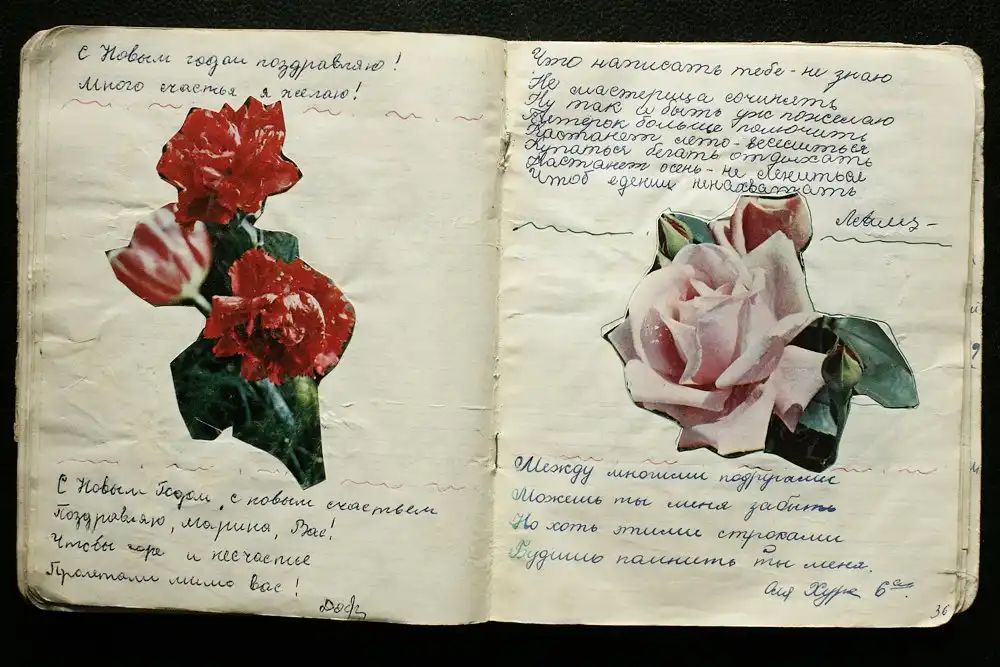 С Новым годом поздравляю!
Много счастья я желаю!
С Новым Годом, с новым счастьем
Поздравляю, Марина, Вас!
Чтобы горе и несчастье
Пролетали мимо вас!
Что написать тебе - не знаю
Не мастерица сочинять
Ну так и быть уж пожелаю
Пятерок больше получить
Настанет лето - веселиться
Купаться бегать отдыхать
Настанет осень - не лениться
Чтоб единиц ненахватать
Между многими подругами
Можешь ты меня забыть
Но хоть этими строками
Будишь помнить ты меня.
Хурк 6
36